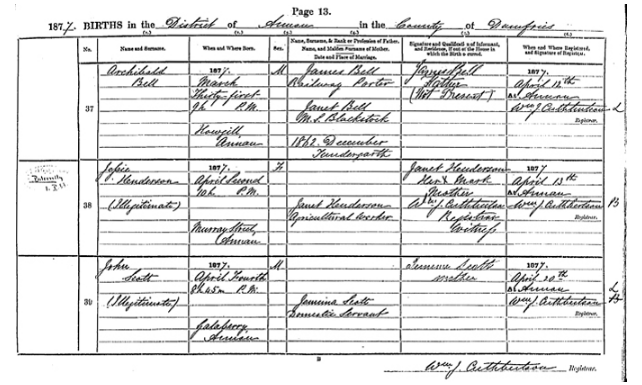 Page 13.
1877. BIRTHS in the District of Annan in the County of Dumfries
No.
Name and Surname.
When and Where Born.
Sex.
Name, Surname, & Rank or Profession of Father.
Name, and Maiden Surname of Mother.
Date and Place of Marriage.
Signature and Qualification of Informant,
and Residence, if out of the House in
which the Birth occurred.
When and Where Registered,
and Signature of Registrar.
37
Archibald
Bell
1877.
March
Thirty first
9h P.M.
Howgill
Annan
M
James Bell
Railway Porter
Janet Bell
M.S. Blacklock
1862. December
Tundergarth
James Bell
Father
(Not Present)
1877.
April 12th
At Annan
Wm J. Cuthbertson
Registrar.
38
Henderson
(Illegitimate)
1877.
April Second
P.M.
Murray Street,
Annan
F
Janet Henderson
Agricultural Worker
Janet Henderson
Her X Mark
Mother
Wm J. Cuthbertson
Registrar
Witness
1877
April 13th
At Annan
Wm J. Cuthbertson
Registrar.
39
John
Scott
(Illegitimate)
1877.
April Fourth
8h 45m P.M.
Annan
M.
Jemima Scott
Domestic Servant
Jemima Scott
mother
1877.
April 20th
At Annan
Wm J. Cuthbertson
Registrar.
Wm J. Cuthbertson Registrar.